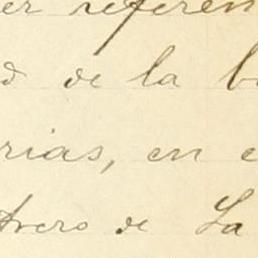 er referen
d de la b
rias, en e
trero de La